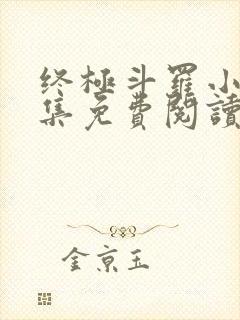 终極斗羅小
集免費閱讀
金京玉